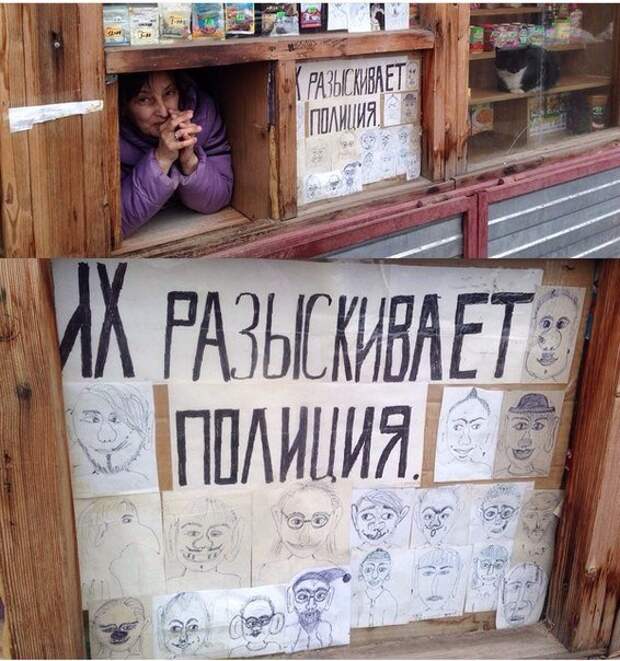 ИХ РАЗЫСКИВАЕТ
ПОЛИЦИЯ.
ИХ РАЗЫСКИВАЕТ
ПОЛИЦИЯ.